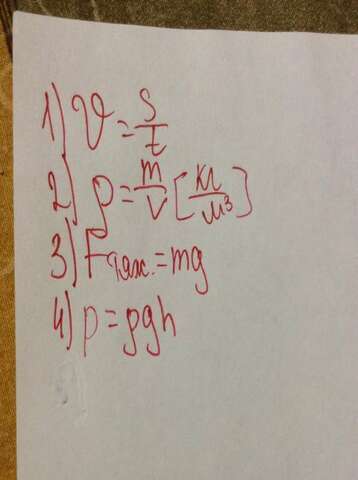 1) υ = s/t
2) ρ = m/V [кг/м³]
3) Fтяж. = mg
4) p = ρgh